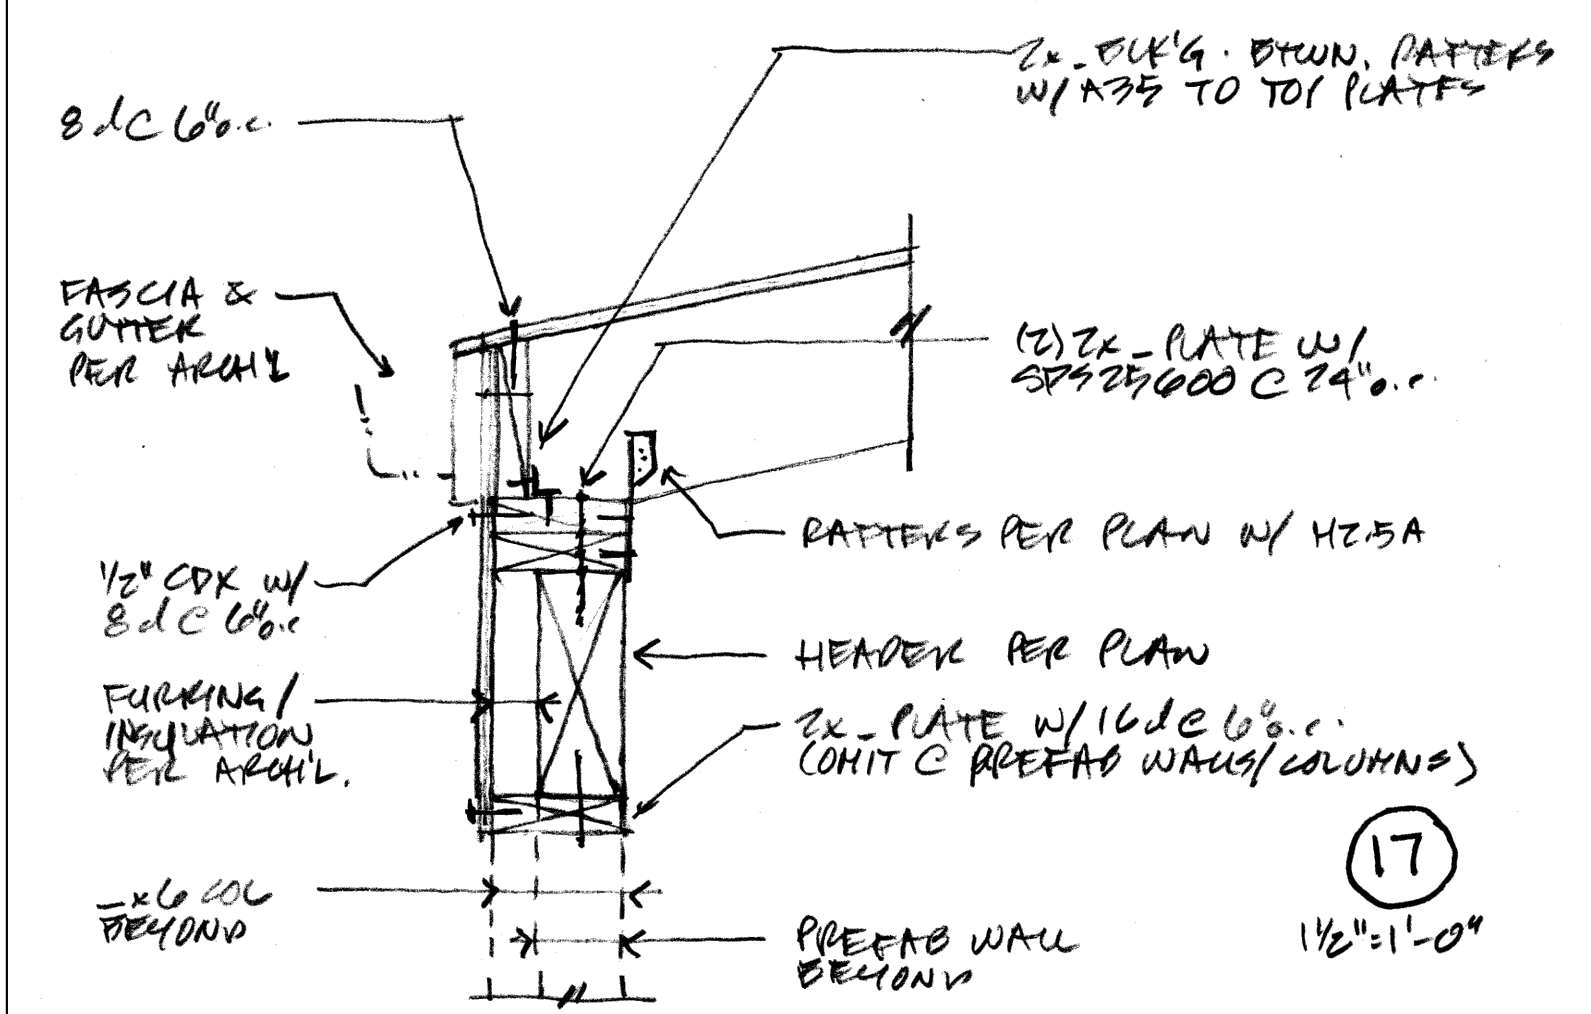 2x_ BLK'G. BTWN. RAFTERS
W/ A35 TO TOP PLATES
8d C 6" o.c.
FASCIA &
GUTTER
PER ARCH'L
(2) 2x_ PLATE W/
SDS25600 C 24" o.c.
RAFTERS PER PLAN W/ H2.5A
1/2" CDX W/
8d C 6" o.c
HEADER PER PLAN
FURRING/
INSULATION
PER ARCH'L.
2x_ PLATE W/ 16d C 6" o.c.
(OMIT C PREFAB WALLS/COLUMNS)
17
1 1/2"=1'-0"
_x6 COL
BEYOND
PREFAB WALL
BEYOND